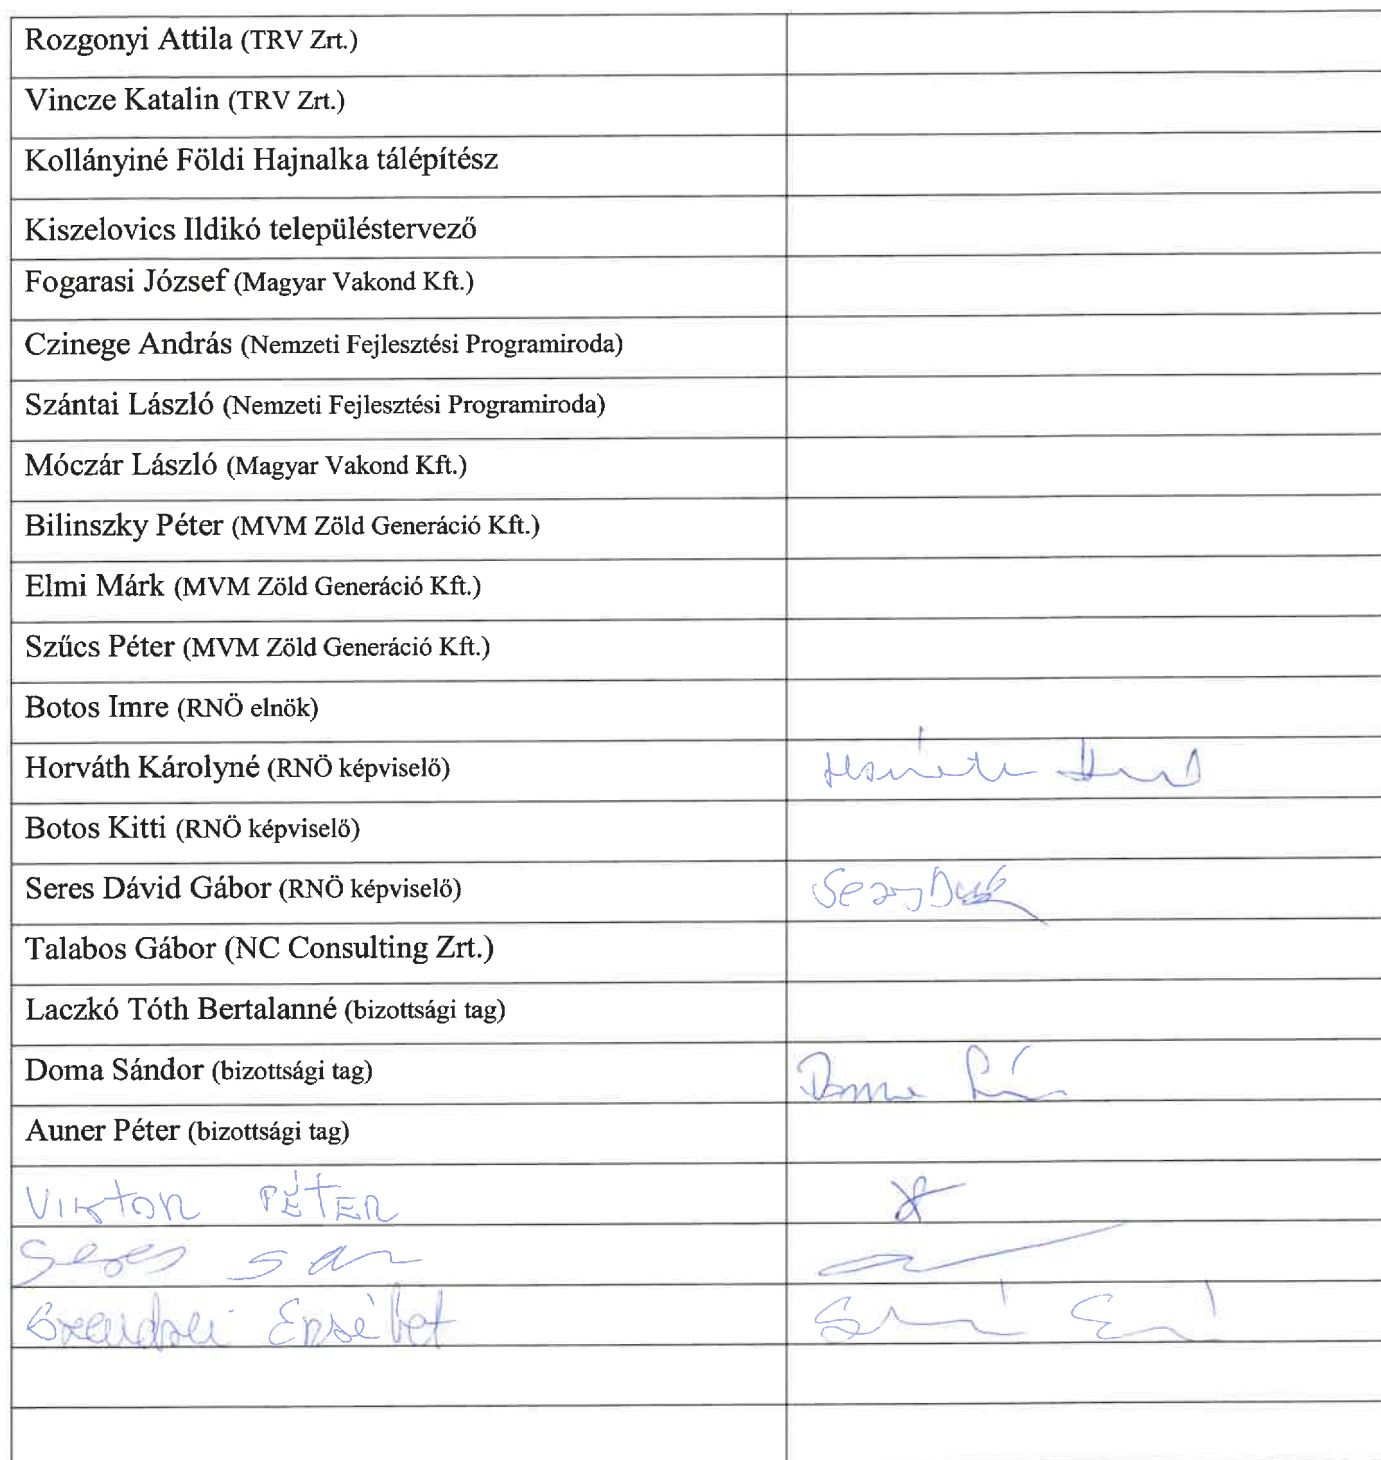 Rozgonyi Attila (TRV Zrt.)
Vincze Katalin (TRV Zrt.)
Kollányiné Földi Hajnalka tálépítész
Kiszelovics Ildikó településtervező
Fogarasi József (Magyar Vakond Kft.)
Czinege András (Nemzeti Fejlesztési Programiroda)
Szántai László (Nemzeti Fejlesztési Programiroda)
Móczár László (Magyar Vakond Kft.)
Bilinszky Péter (MVM Zöld Generáció Kft.)
Elmi Márk (MVM Zöld Generáció Kft.)
Szűcs Péter (MVM Zöld Generáció Kft.)
Botos Imre (RNÖ elnök)
Horváth Károlyné (RNÖ képviselő)
Botos Kitti (RNÖ képviselő)
Seres Dávid Gábor (RNÖ képviselő)
Talabos Gábor (NC Consulting Zrt.)
Laczkó Tóth Bertalanné (bizottsági tag)
Doma Sándor (bizottsági tag)
Auner Péter (bizottsági tag)
VIKTOR PÉTER
Erzsébet